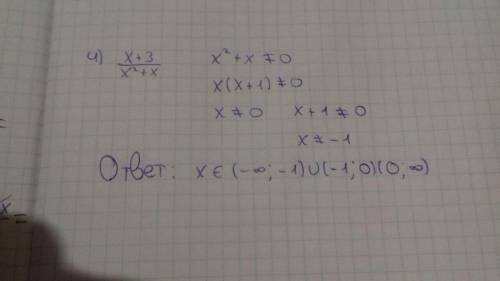 4) x+3/x²+x   x²+x≠0
x(x+1)≠0
x≠0   x+1≠0
x≠-1
Ответ: x∈(-∞;-1)∪(-1;0)(0,∞)
=
x =